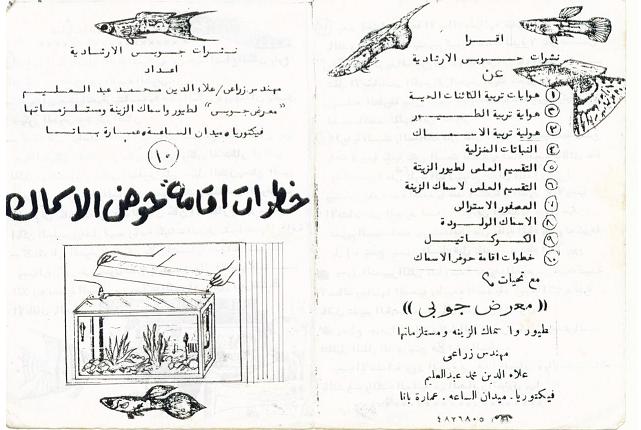 اقرا
نشرات جوبى الارشادية
عن
١ هوايات تربية الكائنات الحية
٢ هواية تربية الطيور
٣ هواية تربية الاسماك
٤ النباتات المنزلية
٥ التقسيم العلمى لطيور الزينة
٦ التقسيم العلمى لاسماك الزينة
٧ العصفور الاسترالى
٨ الاسماك الولودة
٩ الكوكاتيل
١٠ خطوات اقامة حوض الاسماك
مع تحيات
(( معرض جوبى ))
لطيور واسماك الزينه ومستلزماتها
مهندس زراعى
علاء الدين محمد عبدالعليم
فيكتوريا. ميدان الساعه. عمارة باتا
٤٨٢٦٨٠٥
نشرات جوبى الارشادية
اعداد
مهندس زراعى/علاء الدين محمد عبد العليم
"معرض جوبى" لطيور واسماك الزينة ومستلزماتها
فيكتوريا ميدان الساعة عمارة باتا
١٠
خطوات اقامة حوض الاسماك